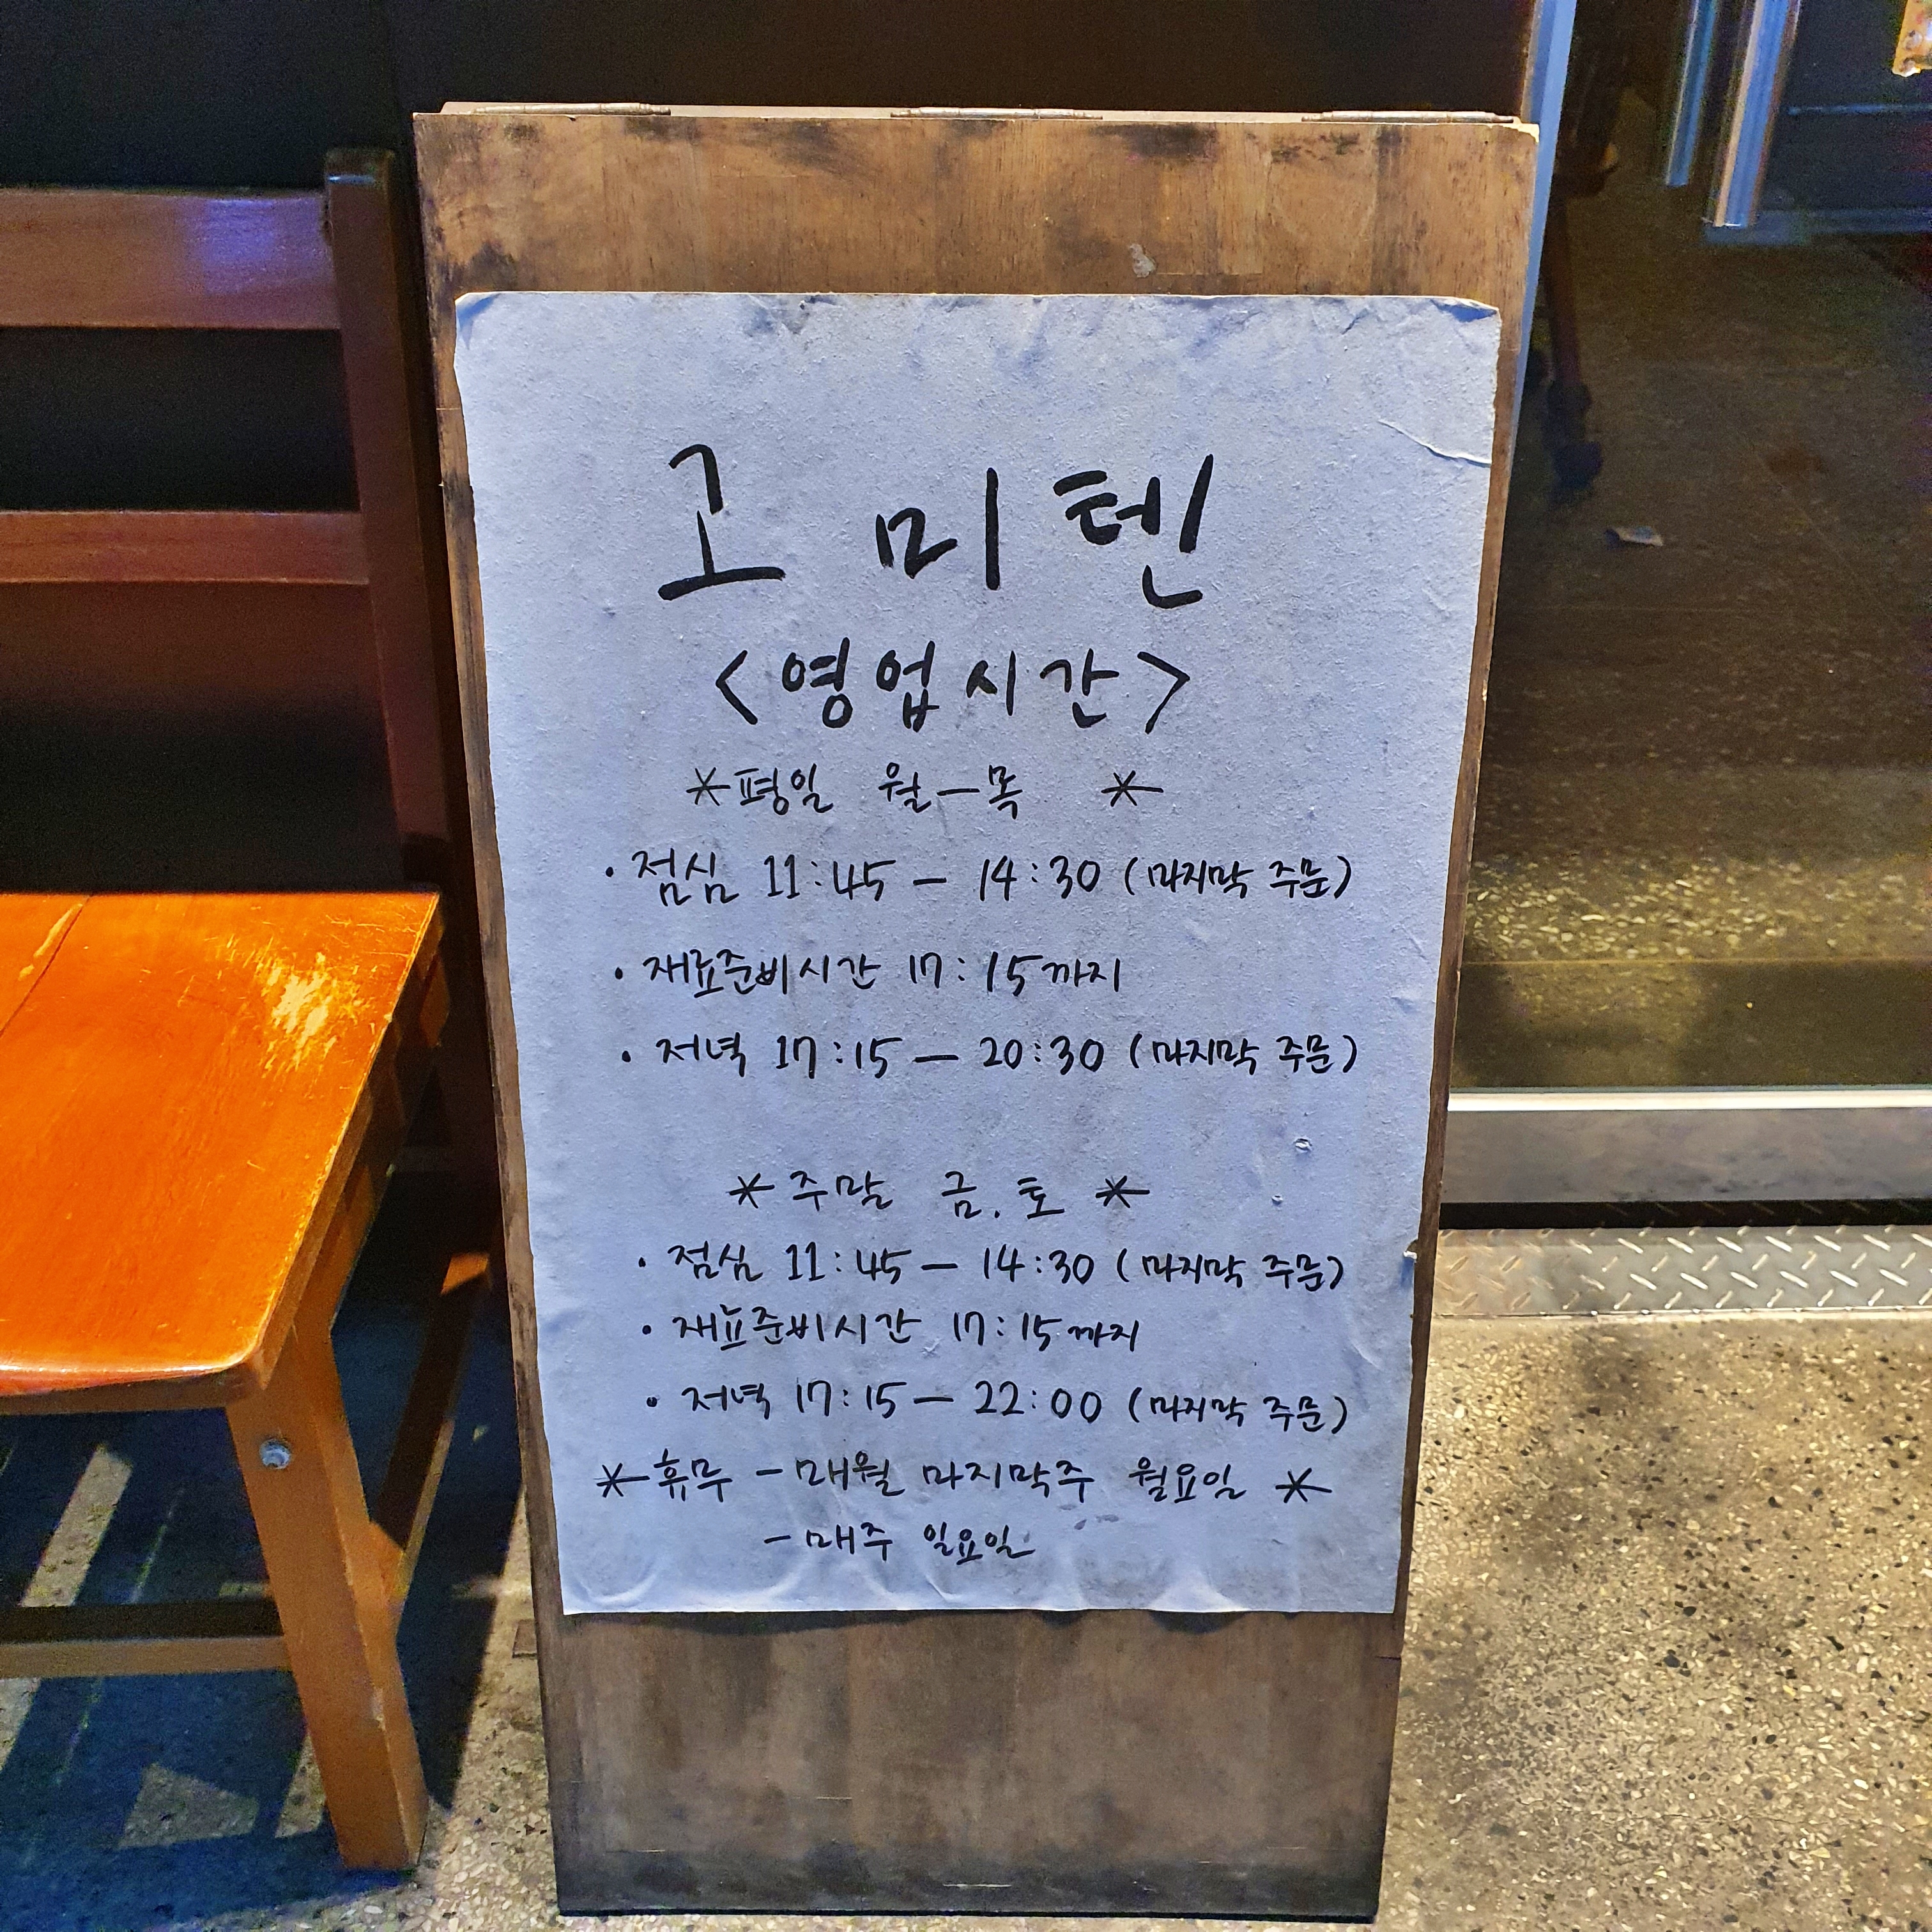 고미텐
<영업시간>
*평일 월-목 *
· 점심 11:45 - 14:30 (마지막 주문)
· 재료준비시간 17:15까지
· 저녁 17:15 - 20:30 (마지막 주문)
* 주말 금.토 *
· 점심 11:45 - 14:30 (마지막 주문)
· 재료준비시간 17:15까지
· 저녁 17:15 - 22:00 (마지막 주문)
*휴무 - 매월 마지막주 월요일 *
- 매주 일요일